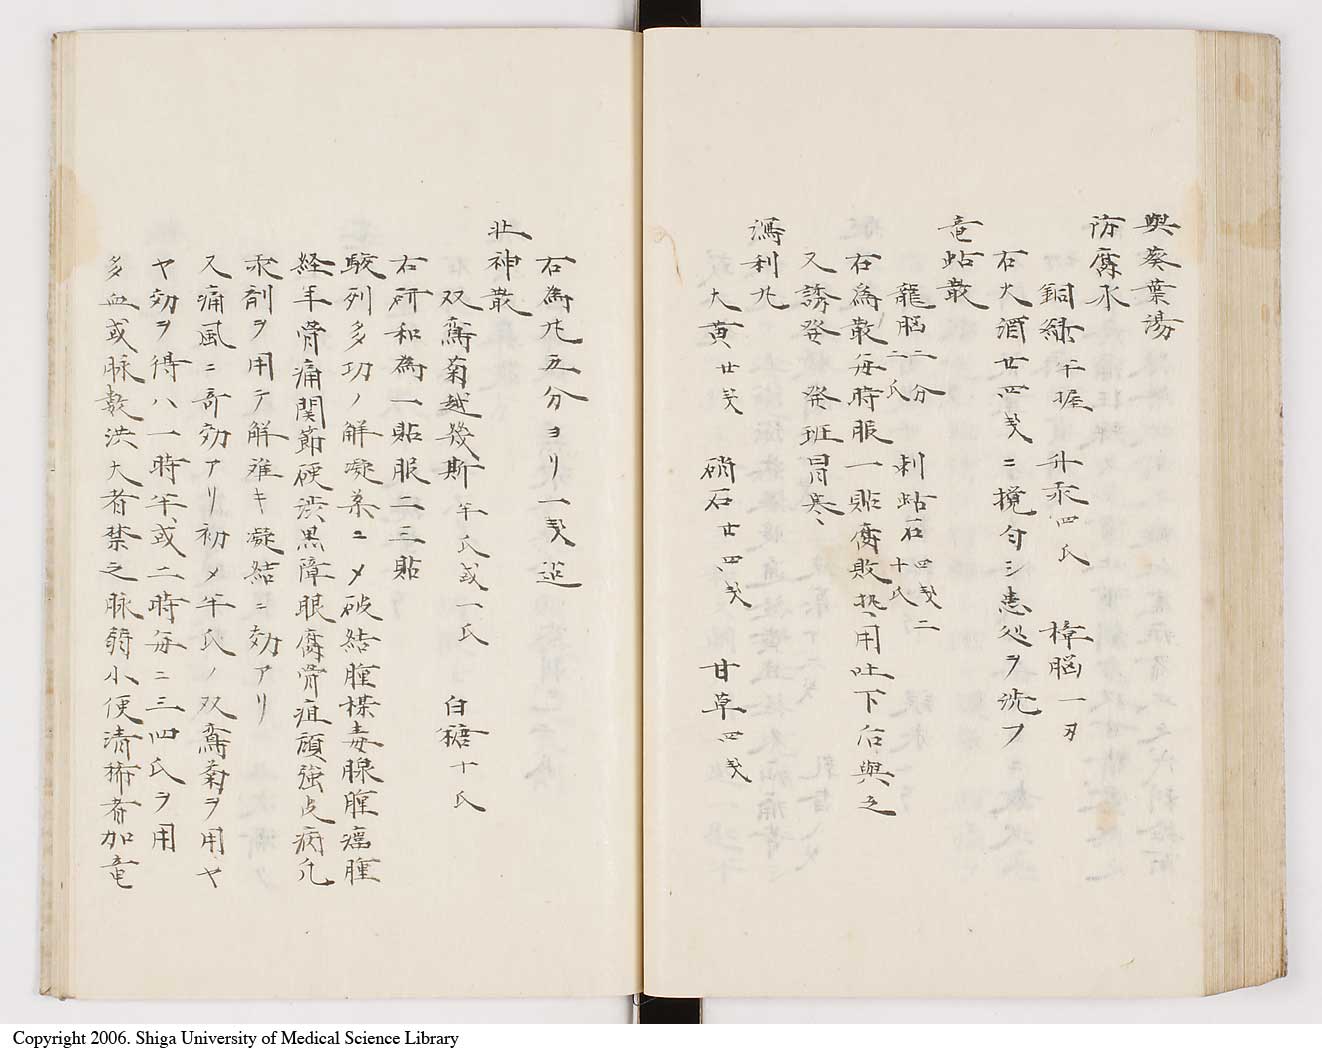 與葵葉湯
防腐水
銅緑半握 升汞四氏 樟脳一刄
右火酒廿四戔ニ攪匀シ患処ヲ洗フ
竜蛄散
龍脳二分二氏 剌蛄石四戔二十氏
右為散毎時服一貼腐敗 用吐下后與之
又誘発 発斑冒寒
瀉利
大黄廿戔 硝石廿四戔 甘草四戔
右為 五分ヨリ一戔迠
壮神散
双鸞菊越幾斯半氏或一氏 白糖十氏
右研和為一貼服二三貼
駿列多功ノ解凝系ニメ破結腫楳毒腺腫癌腫
経年骨痛関節硬渋黒障眼腐骨疽頑強 病凡
汞剤ヲ用テ解難キ凝結ニ効アリ
又痛風ニ奇効アリ初メ半氏ノ双鸞菊ヲ用ヤ
ヤ効ヲ得ハ一時半或二時毎ニ三四氏ヲ用
多血或脉数洪大者禁之脉弱小便清稀者加竜
Copyright 2006. Shiga University of Medical Science Library